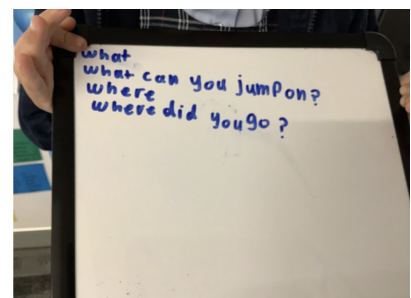 what
what can you jump on?
where
where did you go?